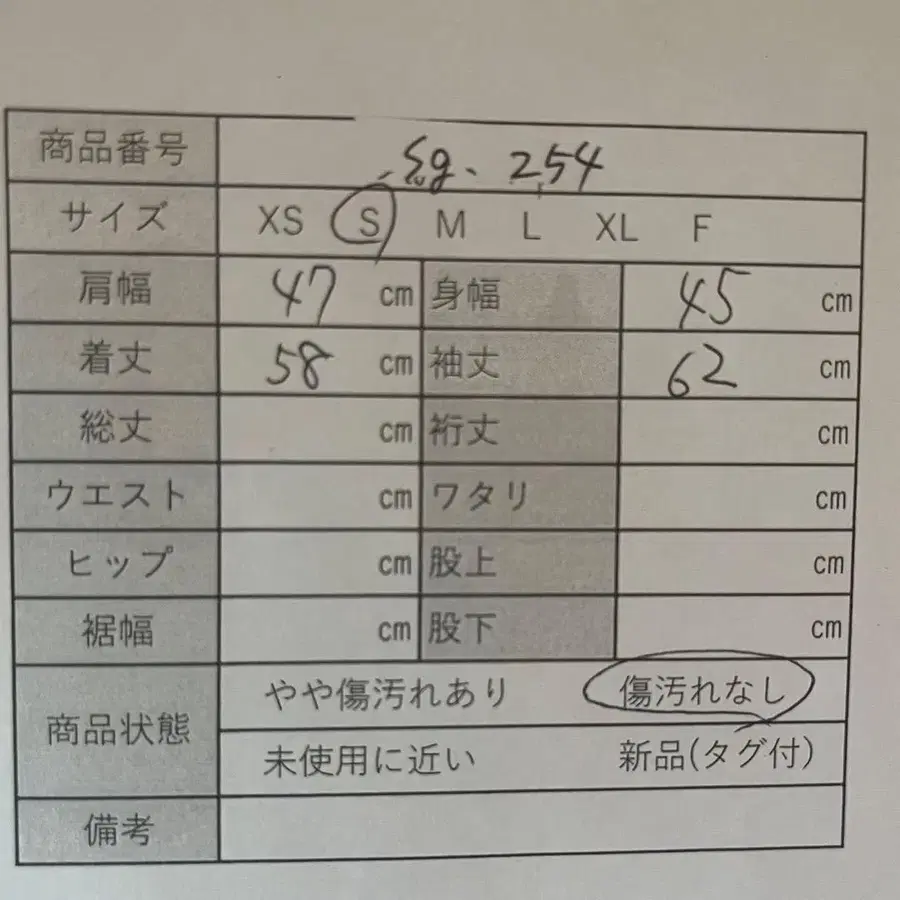 商品番号 Sg. 254
サイズ XS S M L XL F
肩幅 47 cm 身幅 45 cm
着丈 58 cm 袖丈 62 cm
総丈 cm 裄丈 cm
ウエスト cm ワタリ cm
ヒップ cm 股上 cm
裾幅 cm 股下 cm
商品状態 やや傷汚れあり 傷汚れなし
未使用に近い 新品(タグ付)
備考